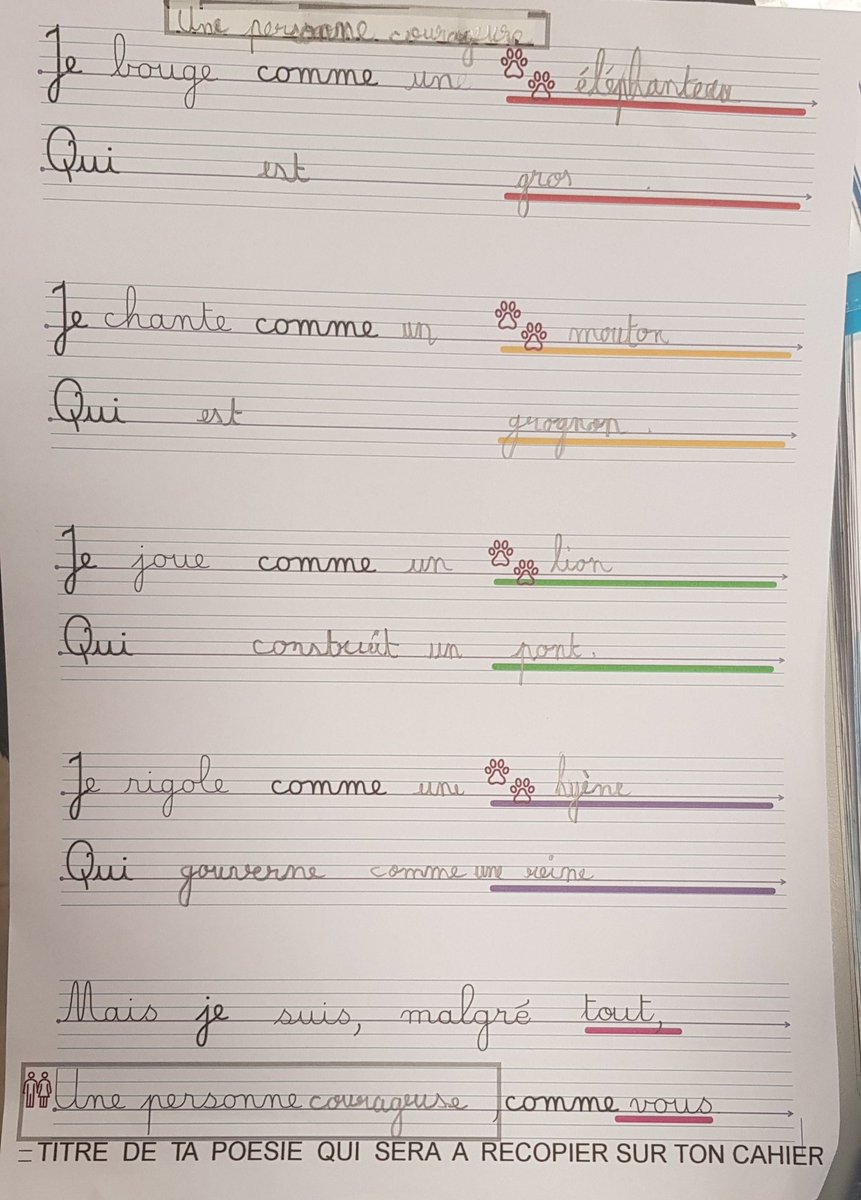 Une personne courageuse
Je bouge comme un éléphanteau
Qui est gros
Je chante comme un mouton
Qui est grognon.
Je joue comme un lion
Qui construit un pont.
Je rigole comme une hyène
Qui gouverne comme une reine
Mais je suis, malgré tout,
Une personne courageuse, comme vous
= TITRE DE TA POESIE QUI SERA A RECOPIER SUR TON CAHIER